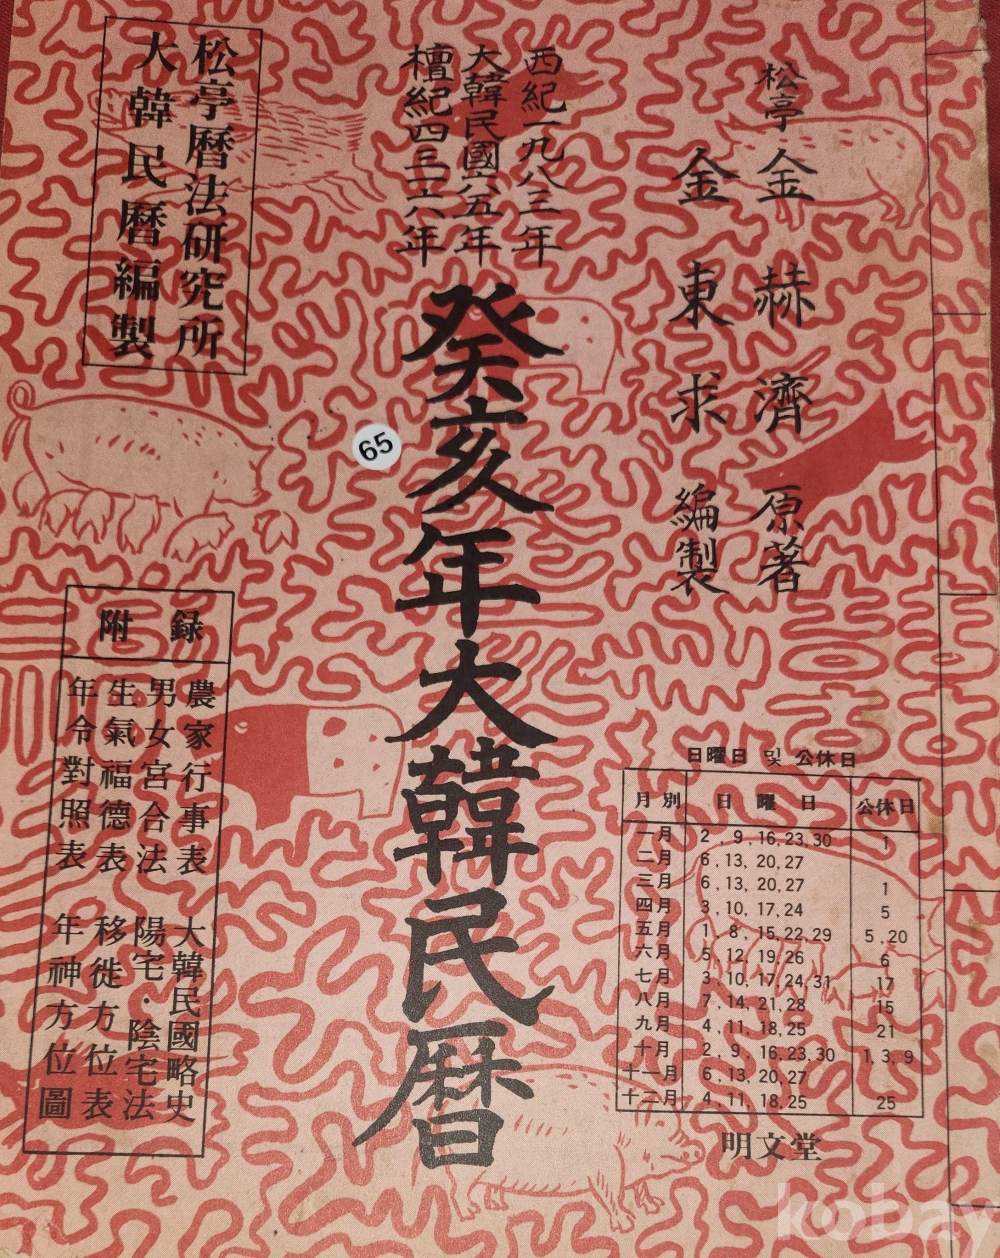 松亭 金赫濟 原著
金東求 編製
西紀一九八三年
大韓民國六五年
檀紀四三一六年
癸亥年大韓民曆
松亭曆法研究所
大韓民曆編製
65
附錄
農家行事表 大韓民國略史
男女宮合法 陽宅·陰宅法
生氣福德表 移徙方位表
年令對照表 年神方位圖
日曜日 및 公休日
月別 日曜日 公休日
一月 2, 9, 16, 23, 30 1
二月 6, 13, 20, 27
三月 6, 13, 20, 27 1
四月 3, 10, 17, 24 5
五月 1, 8, 15, 22, 29 5, 20
六月 5, 12, 19, 26 6
七月 3, 10, 17, 24, 31 17
八月 7, 14, 21, 28 15
九月 4, 11, 18, 25 21
十月 2, 9, 16, 23, 30 1, 3, 9
十一月 6, 13, 20, 27
十二月 4, 11, 18, 25 25
明文堂
kobay